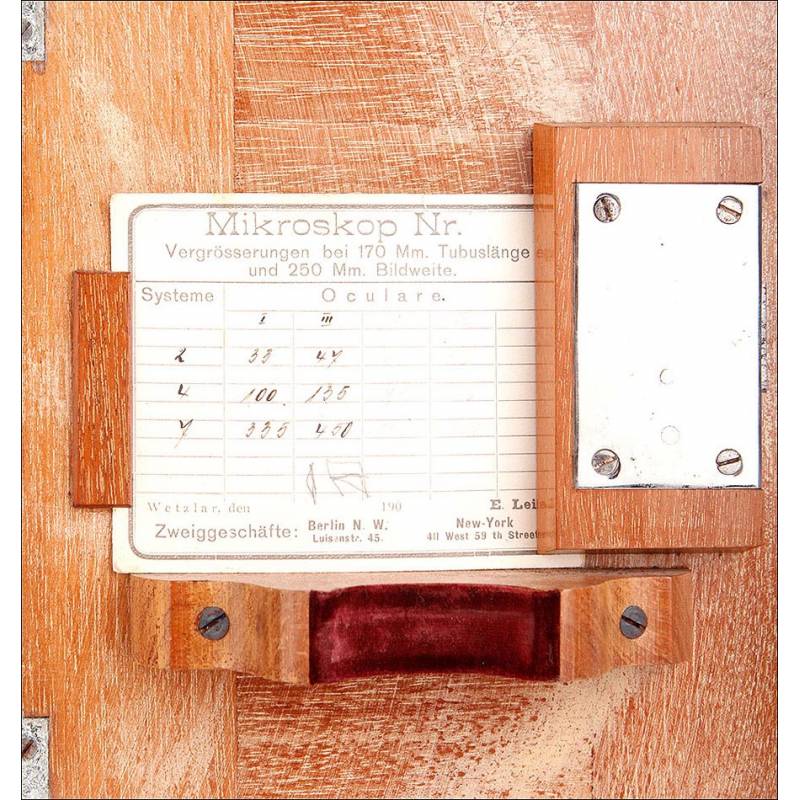 Mikroskop Nr.
Vergrösserungen bei 170 Mm. Tubuslänge
und 250 Mm. Bildweite.
Systeme Oculare.
I III
2 33 47
4 100. 135
7 335 450
Wetzlar, den 190 E.
Zweiggeschäfte: Berlin N. W. New-York
Luisenstr. 45. 411 West 59 th Street